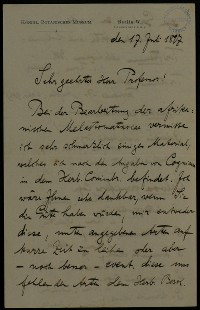 Königl. Botanisches Museum
Berlin W.
den 17. Juli 1897
Sehr geehrter Herr Professor!
Bei der Bearbeitung der afrika-
nischen Melastomataceen vermisste
ich sehr schmerzlich einige Material,
welches sich nach den Angaben von Cogniaux
in dem Herb. befindet. Ich
wäre Ihnen sehr dankbar, wenn Sie
die Güte haben würden, mir entweder
diese, unten angegebenen Arten auf
kurze Zeit zu leihen oder aber
— noch besser — event. diese uns
fehlenden Arten dem Herb. Berol.